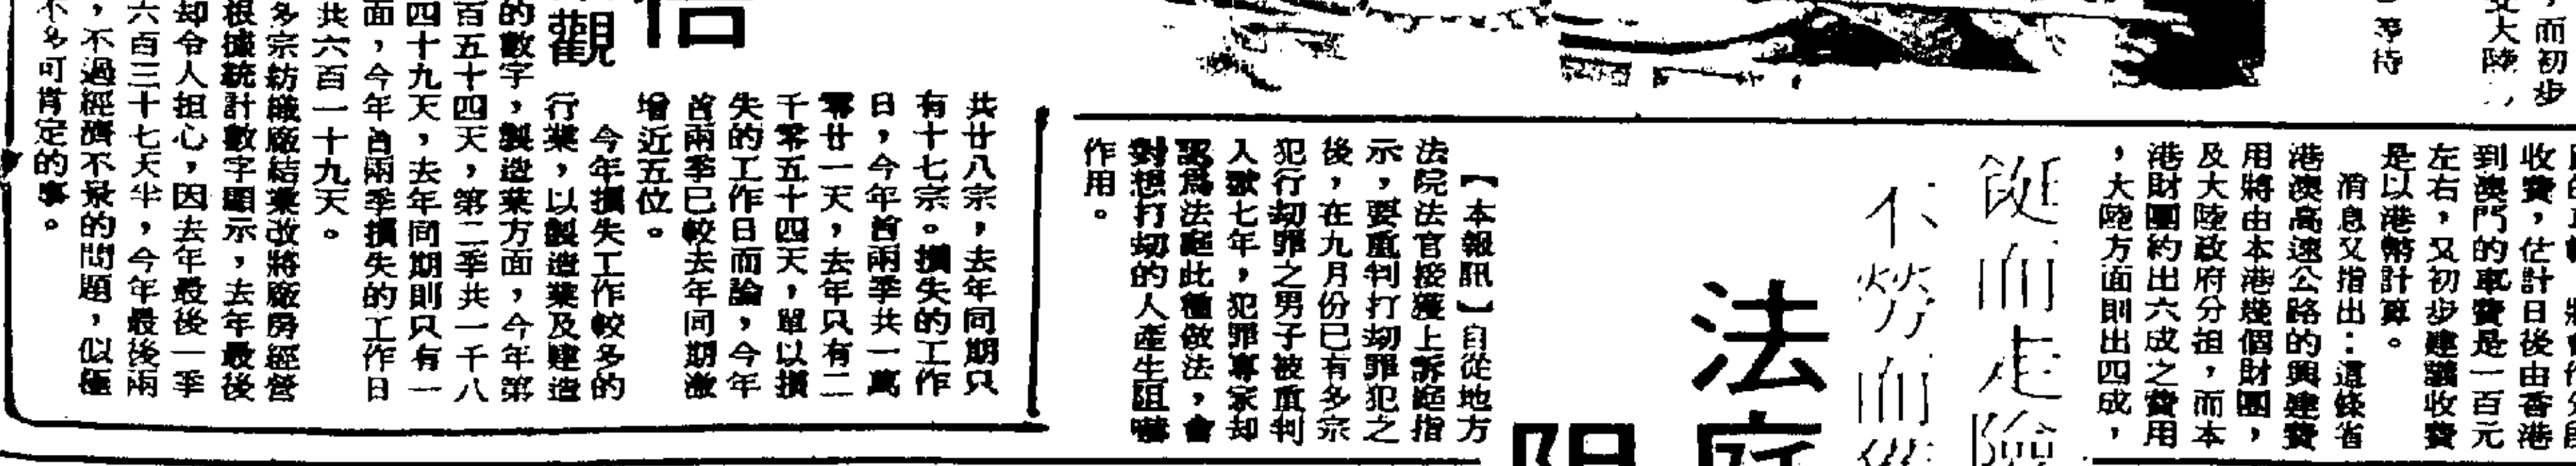 ，而初步
大陸
等待
收費，估計日後由香港
到澳門的車費是一百元
左右，又初步建議收費
是以港幣計算。
消息又指出：這條省
港澳高速公路的興建費
用將由本港幾個財團，
及大陸政府分担，而本
港財團約出六成之費用
，大陸方面則出四成，
鋌而走險
不勞而
法庭
阻
【本報訊】自從地方
法院法官接獲上訴庭指
示，要重判打刧罪犯之
後，在九月份已有多宗
犯行刧罪之男子被重判
入獄七年，犯罪專家却
認爲法庭此種做法，會
對想打刧的人產生阻嚇
作用。
觀
共廿八宗，去年同期只
有十七宗。損失的工作
日，今年首兩季共一萬
零廿一天，去年只有二
千零五十四天，單以損
失的工作日而論，今年
首兩季已較去年同期激
增近五位。
今年損失工作較多的
行業，以製造業及建造
的數字，製造業方面，今年第
百五十四天，第二季共一千八
四十九天，去年同期則只有一
面，今年首兩季損失的工作日
共六百一十九天。
多宗紡織廠結業改將廠房經營
根據統計數字顯示，去年最後
却令人担心，因去年最後一季
六百三十七天半，今年最後兩
，不過經濟不景的問題，似極
不多可肯定的事。